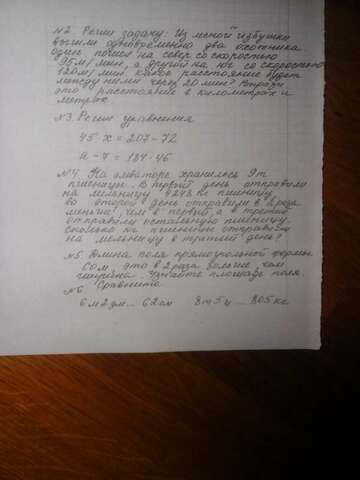 №2. Реши задачу. Из лесной избушки
вышли одновременно два охотника
один пошел на север со скоростью
95м/мин, а другой на юг со скоростью
120м/мин. какое расстояние будет
между ними через 20 мин? Вырази
это расстояние в километрах и
метрах.
№3. Реши уравнения
45·х = 207-72
а - 7 = 184·46
№4. На элеваторе хранилось 9т
пшеницы. В первый день отправили
на мельницу кг пшеницы,
во второй день отправили в 2 раза
меньше, чем в первый, а в третий
отправили остальную пшеницу.
сколько кг пшеницы отправили
на мельницу в третий день?
№5 Длина поля прямоугольной формы
60м, это в 2 раза больше, чем
ширина. Узнайте площадь поля.
№6 Сравнить
6м2дм... 62дм 8т5ц ... 805кг